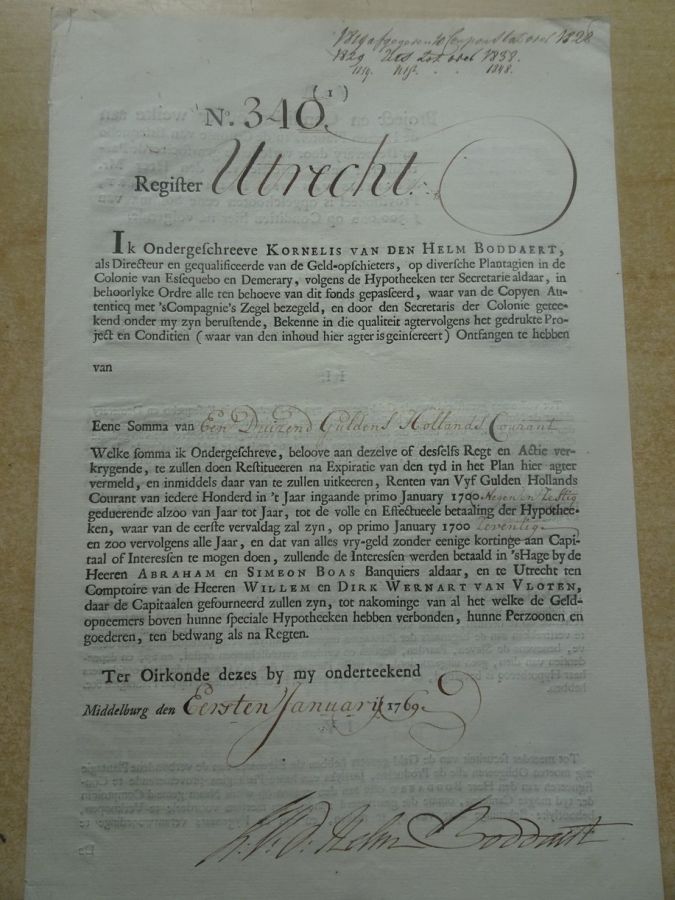 1819 afgegeven 10 Coupons tot ored 1828
1829 dito tot ored 1838.
1848.
(1)
No. 340.
Regiſter Utrecht.
Ik Ondergeſchreeve KORNELIS VAN DEN HELM BODDAERT,
als Directeur en gequalificeerde van de Geld-opſchieters, op diverſche Plantagien in de
Colonie van Eſſequebo en Demerary, volgens de Hypotheeken ter Secretarie aldaar, in
behoorlyke Ordre alle ten behoeve van dit fonds gepaſſeerd, waar van de Copyen Au-
tenticq met 'sCompagnie's Zegel bezegeld, en door den Secretaris der Colonie getee-
kend onder my zyn beruſtende, Bekenne in die qualiteit agtervolgens het gedrukte Pro-
ject en Conditien (waar van den inhoud hier agter is geinſereert) Ontfangen te hebben
van
Eene Somma van Een Duizend Guldens Hollands Courant
Welke ſomma ik Ondergeſchreve, beloove aan dezelve of desſelfs Regt en Actie ver-
krygende, te zullen doen Reſtitueeren na Expiratie van den tyd in het Plan hier agter
vermeld, en inmiddels daar van te zullen uitkeeren, Renten van Vyf Gulden Hollands
Courant van iedere Honderd in 't Jaar ingaande primo January 1700 Negen en Zestig
geduerende alzoo van Jaar tot Jaar, tot de volle en Effectueele betaaling der Hypothee-
ken, waar van de eerſte vervaldag zal zyn, op primo January 1700 Zeventig
en zoo vervolgens alle Jaar, en dat van alles vry-geld zonder eenige kortinge aan Capi-
taal of Intereſſen te mogen doen, zullende de Intereſſen werden betaald in 'sHage by de
Heeren ABRAHAM en SIMEON BOAS Banquiers aldaar, en te Utrecht ten
Comptoire van de Heeren WILLEM en DIRK WERNART VAN VLOTEN,
daar de Capitaalen gefourneerd zullen zyn, tot nakominge van al het welke de Geld-
opneemers boven hunne ſpeciale Hypotheeken hebben verbonden, hunne Perzoonen en
goederen, ten bedwang als na Regten.
Ter Oirkonde dezes by my onderteekend
Middelburg den Eersten Januarij 1769.
K. V. D. Helm Boddaert